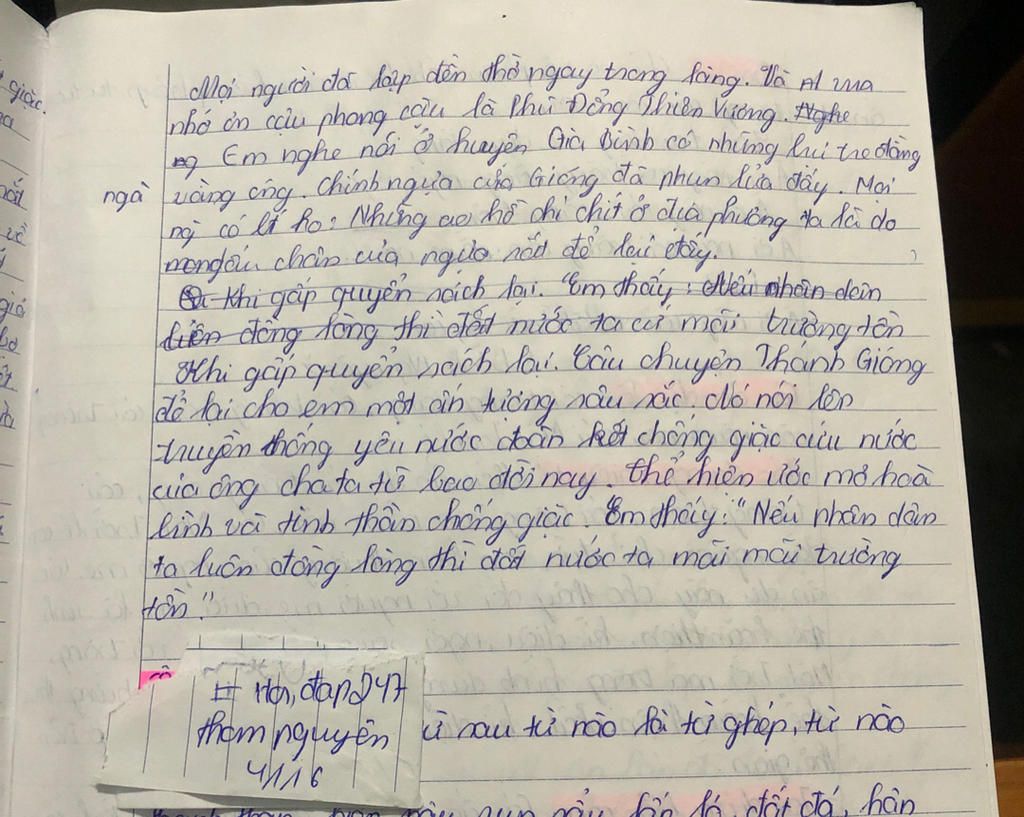 giặc.
Mọi người đã lập đền thờ ngay trong làng. Và vua
nhớ ơn cậu phong cậu là Phù Đổng Thiên Vương. Nghe
ng Em nghe nói ở huyện Gia Bình có những bụi tre đằng
ngà vàng óng. Chính ngựa của Gióng đã phun lửa đấy. Mọi
ng có lí ho: Những ao hồ chi chít ở địa phương ta là do
dấu chân của ngựa sắt để lại đấy.
Khi gấp quyển sách lại. "Em thấy: Nếu nhân dân
liên đồng lòng thì đất nước ta cứ mãi trường tồn
Khi gấp quyển sách lại. Câu chuyện Thánh Gióng
để lại cho em một ấn tượng sâu sắc, đó nói lên
truyền thống yêu nước đoàn kết chống giặc cứu nước
của ông cha ta từ bao đời nay. thể hiện ước mơ hoà
bình và tinh thần chống giặc. Em thấy: "Nếu nhân dân
ta luôn đồng lòng thì đất nước ta mãi mãi trường
tồn."
# Hỏi, đáp 247
tham nguyên
4/1/16
từ nào là từ ghép, từ nào
đất đá, hân